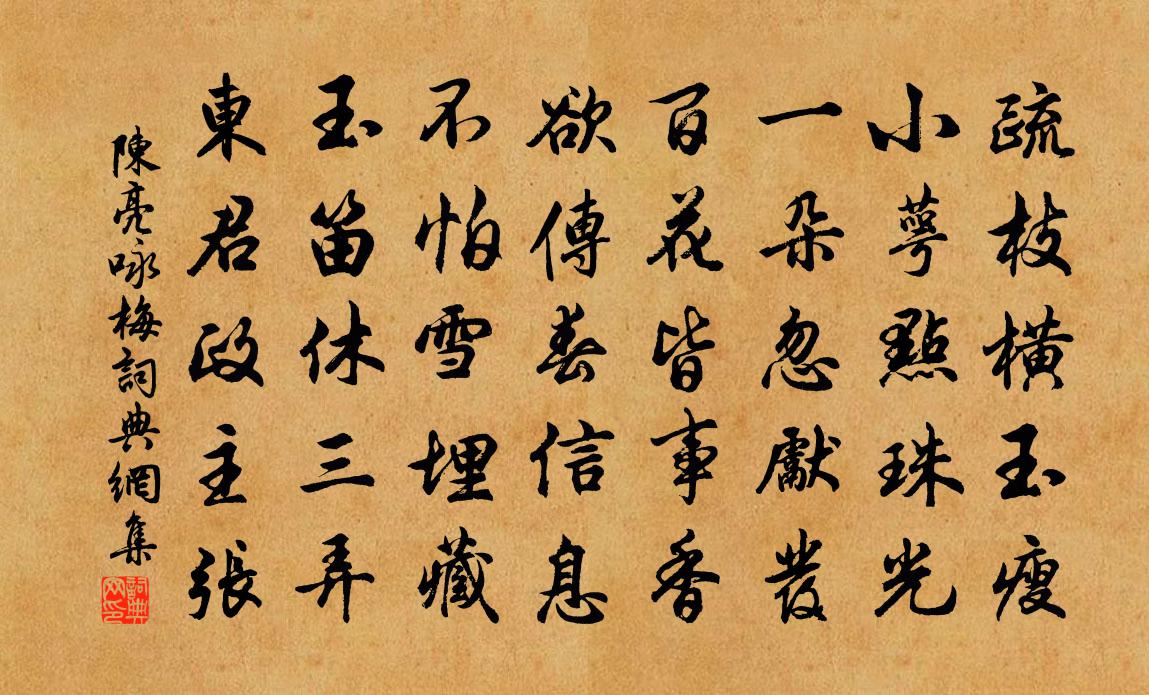 疏枝橫玉瘦
小萼點珠光
一朵忽獻發
百花皆事香
欲傳春信息
不怕雪埋藏
玉笛休三弄
東君政主張
陳亮咏梅詞典網集
詞典网印